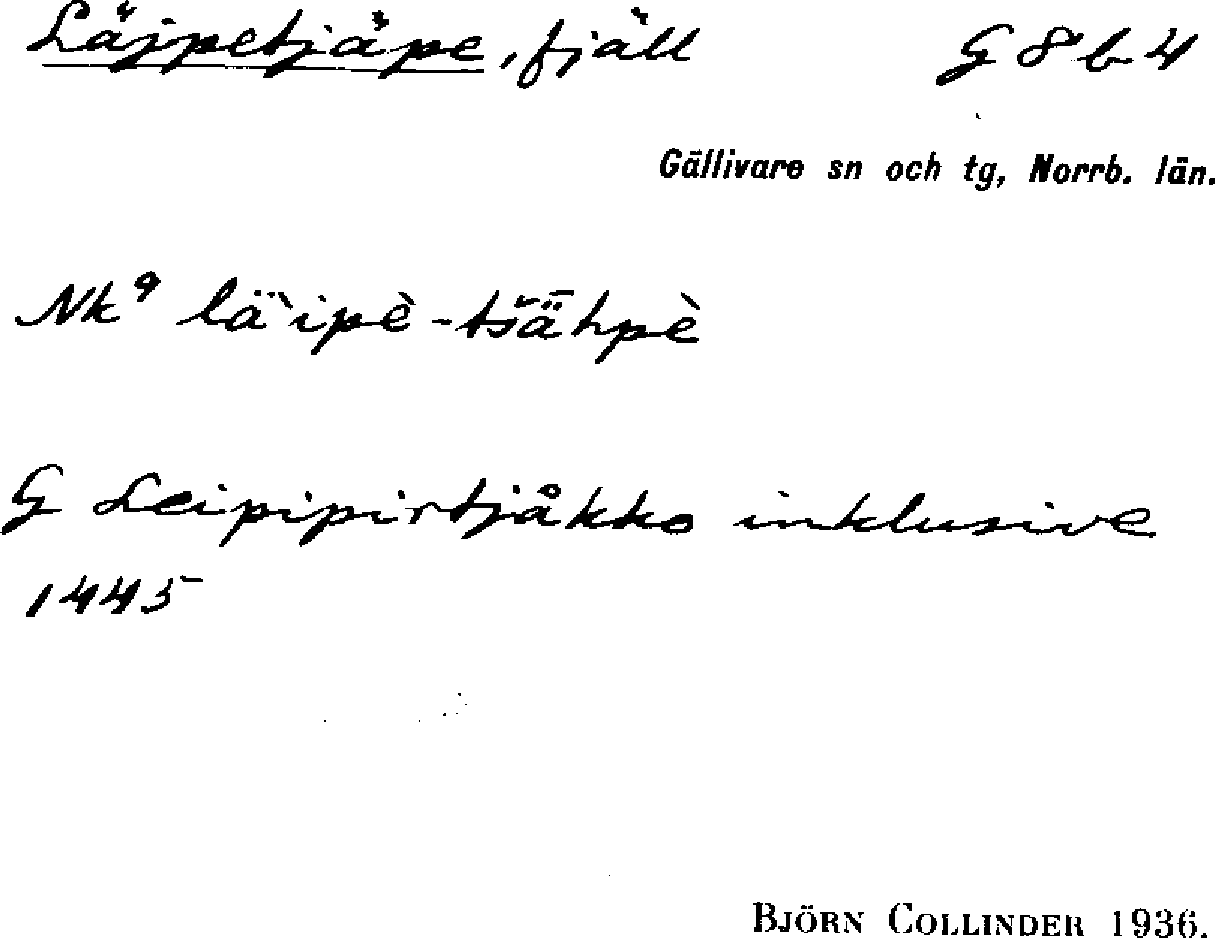 Läjpetjäpe, fjäll G 8 b 4
Gällivare sn och tg, Norrb. län.
Nk⁹ lä̀ipè-tšǟhpè
G Leipipirtjåkko inklusive
1445
BJÖRN COLLINDER 1936.